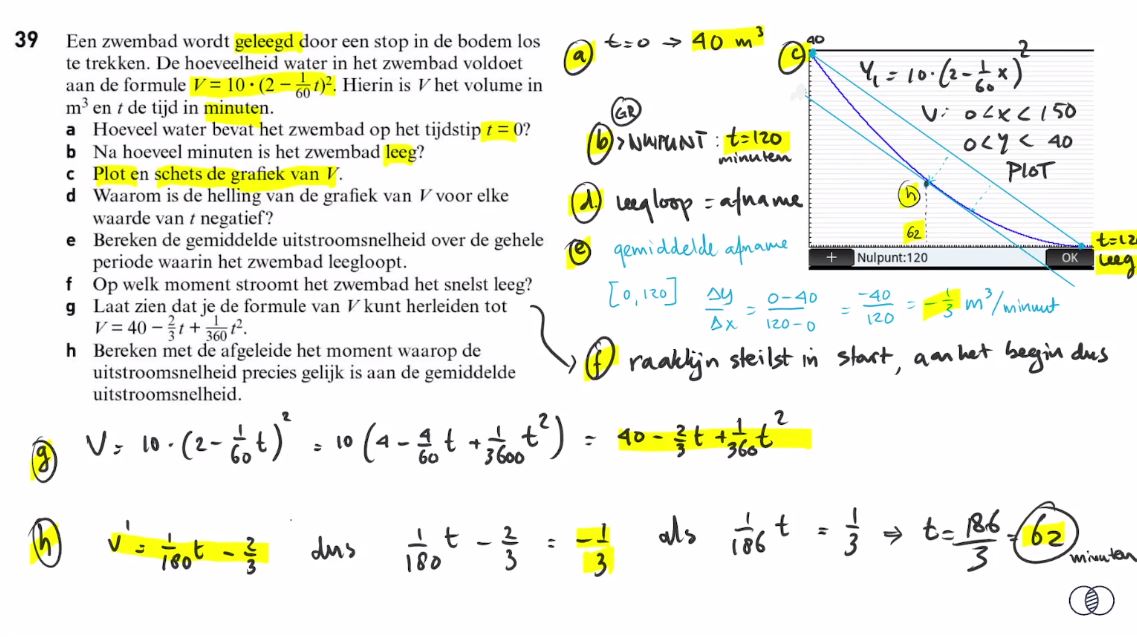 39 Een zwembad wordt geleegd door een stop in de bodem los
te trekken. De hoeveelheid water in het zwembad voldoet
aan de formule V = 10 · (2 − 1/60 t)². Hierin is V het volume in
m³ en t de tijd in minuten.
a Hoeveel water bevat het zwembad op het tijdstip t = 0?
b Na hoeveel minuten is het zwembad leeg?
c Plot en schets de grafiek van V.
d Waarom is de helling van de grafiek van V voor elke
waarde van t negatief?
e Bereken de gemiddelde uitstroomsnelheid over de gehele
periode waarin het zwembad leegloopt.
f Op welk moment stroomt het zwembad het snelst leeg?
g Laat zien dat je de formule van V kunt herleiden tot
V = 40 − 2/3 t + 1/360 t².
h Bereken met de afgeleide het moment waarop de
uitstroomsnelheid precies gelijk is aan de gemiddelde
uitstroomsnelheid.
a t=0 → 40 m³
GR
b > NULPUNT: t=120
minuten
d. leegloop = afname
e gemiddelde afname
[0,120] Δy/Δx = 0-40/120-0 = -40/120 = -1/3 m³/minuut
f raaklijn steilst in start, aan het begin dus
c 40
Y₁ = 10·(2-1/60 x)²
V: 0<x<150
0<y<40
PLOT
h
62
t=12
leeg
+ Nulpunt:120 OK
g V= 10·(2-1/60 t)² = 10(4-4/60 t + 1/3600 t²) = 40 - 2/3 t + 1/360 t²
h V' = 1/180 t - 2/3 dus 1/180 t - 2/3 = -1/3 als 1/186 t = 1/3 ⇒ t= 186/3 = 62
minuten